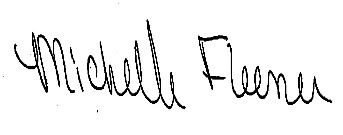 Michelle Fleener